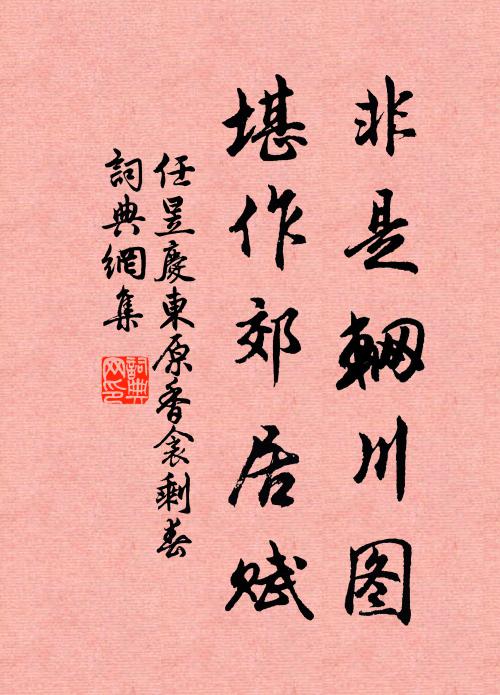 非是輞川图
堪作郊居賦
任昱慶東原香奩剩春
詞典網集
詞典網印